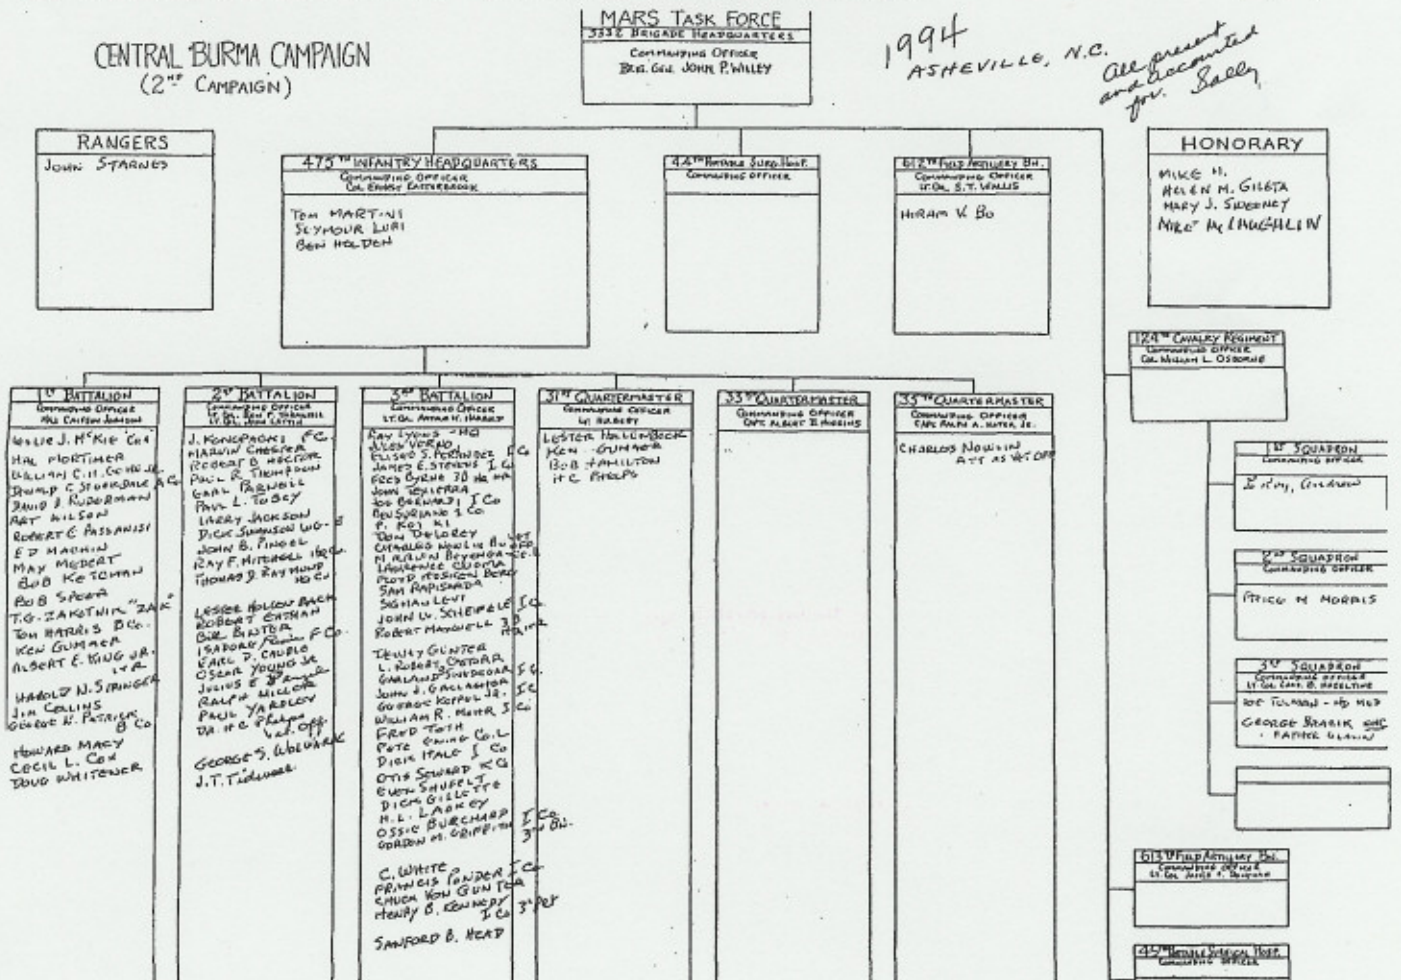 MARS TASK FORCE
5332 BRIGADE HEADQUARTERS
COMMANDING OFFICER
BRIG. GEN. JOHN P. WILLEY
CENTRAL BURMA CAMPAIGN
(2ND CAMPAIGN)
1994
ASHEVILLE, N.C.
All present
and accounted
for. Sally
RANGERS
JOHN STARNES
475TH INFANTRY HEADQUARTERS
COMMANDING OFFICER
COL. ERNEST EASTERBROOK
TOM MARTINI
SEYMOUR LURI
BEN HOLDEN
44TH PORTABLE SURG. HOSP.
COMMANDING OFFICER
612TH FIELD ARTILLERY BN.
COMMANDING OFFICER
LT. COL. S.T. WALLIS
HIRAM K. BO
HONORARY
MIKE H.
HELEN M. GILETA
MARY J. SWEENEY
MIKE McLAUGHLIN
124TH CAVALRY REGIMENT
COMMANDING OFFICER
COL. WILLIAM L. OSBORNE
1ST BATTALION
COMMANDING OFFICER
LESLIE J. McKIE
HAL MORTIMER
WILLIAM C.H.
DAVID J. RUDERMAN
ART WILSON
ROBERT E PASSANISI
ED MACHIN
MAY MEDERT
BOB KETCHAM
BOB SPEER
T.G. ZAKOTNIK "ZAK"
TOM HARRIS B Co.
KEN GUMMER
ALBERT E. KING JR.
HAROLD N. STRINGER
JIM COLLINS
GEORGE W. PATRICK
B Co
HOWARD MACY
CECIL L. COX
DOUG WHITENER
2ND BATTALION
COMMANDING OFFICER
J. KONOPACKI F C.
MARVIN CHESTER
ROBERT B HECTOR
PAUL R THOMPSON
EARL PARNELL
PAUL L. TOBEY
LARRY JACKSON
DICK SWANSON
JOHN B. PINGEL
RAY F. MITCHELL
THOMAS D. RAYMOND
HQ Co
LESTER HOLLENBACK
ROBERT EATHAN
BILL BINTER
ISADORE F Co.
EARL D. CAUBLE
OSCAR YOUNG JR
JULIUS E
RALPH MILLER
PAUL YARDLEY
DR. H C Phelps
Vet. Off.
GEORGE S.
J.T. Tidwell
3RD BATTALION
COMMANDING OFFICER
RAY LYONS - HQ
JULES VERNO
ELISEO S. FERNANDEZ I Co
JAMES E. STEVENS I Co
FRED BYRNE 3D
JOHN TEXIERRA
JOE BERNARDI, I Co
BEN SURIANO I Co.
DON DELOREY
CHARLES NOWLIN
MARVIN BEYENGA
LAURENCE CUOMA
FLOYD
SAM RAPISARDA
SIGMAN LEVI
JOHN W. SCHEIFELE I Co
ROBERT MAXWELL 3D
DEWEY GUNTER
L. ROBERT CASTORR
GARLAND I Co.
JOHN J. GALLAGHER I C
GEORGE KOPPEL JR. I C
WILLIAM R. MOHR I Co
FRED TOTH
PETE EWING Co. L
DICK HALE I Co
OTIS SEWARD K Co
EVEN SHUFELT
DICK GILLETTE
H.L. LACKEY
OSSIE BURCHARD I Co.
GORDON M. GRIFFITH 3RD BN.
C. WHITE
FRANCIS PONDER I Co
CHUCK VON GUNTER
HENRY B. KENNEDY
I Co 3RD
SANFORD B. HEAD
31ST QUARTERMASTER
COMMANDING OFFICER
LESTER HOLLENBACK
KEN GUMMER
BOB HAMILTON
H C PHELPS
33RD QUARTERMASTER
COMMANDING OFFICER
CAPT. ALBERT D. HIGGINS
35TH QUARTERMASTER
COMMANDING OFFICER
CAPT. RALPH A. HOTER, JR.
CHARLES NOWLIN
ATT AS VET OFF
1ST SQUADRON
COMMANDING OFFICER
2ND SQUADRON
COMMANDING OFFICER
PRICE M MORRIS
3RD SQUADRON
COMMANDING OFFICER
LT. COL. CHAS. B. HAZELTINE
JOE TULMAN - HQ MED
GEORGE BRABIK
FATHER GLAVIN
613TH FIELD ARTILLERY BN.
COMMANDING OFFICER
LT. COL. JAMES F. DONOVAN
PORTABLE SURGICAL HOSP.
COMMANDING OFFICER